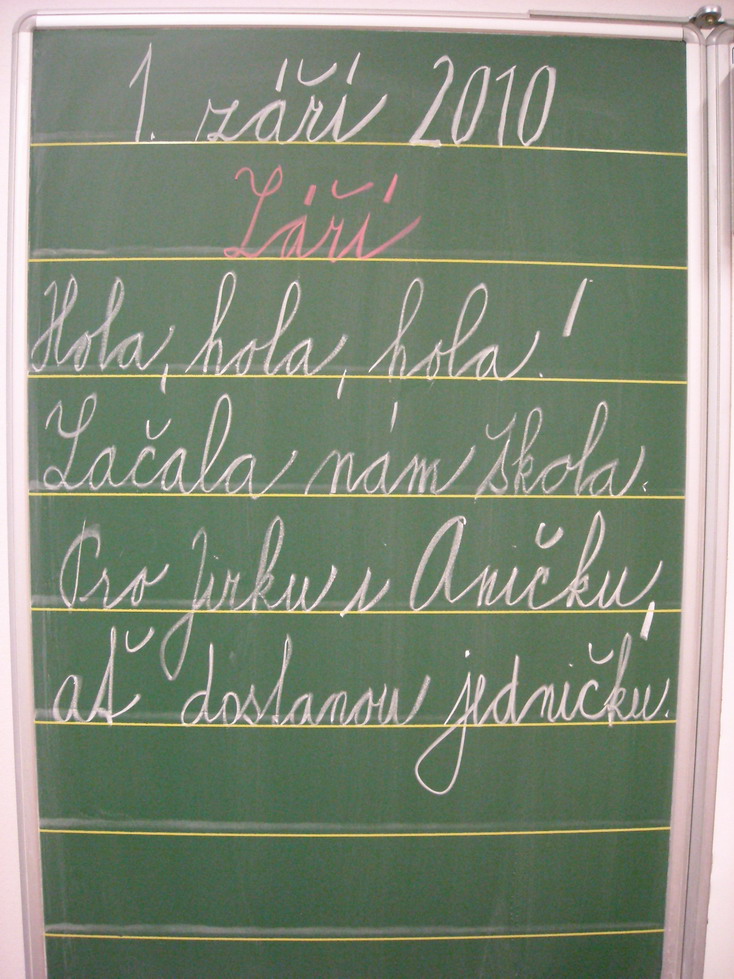 1. září 2010
Září
Hola, hola, hola!
Začala nám škola.
Pro Jirku i Aničku,
ať dostanou jedničku.